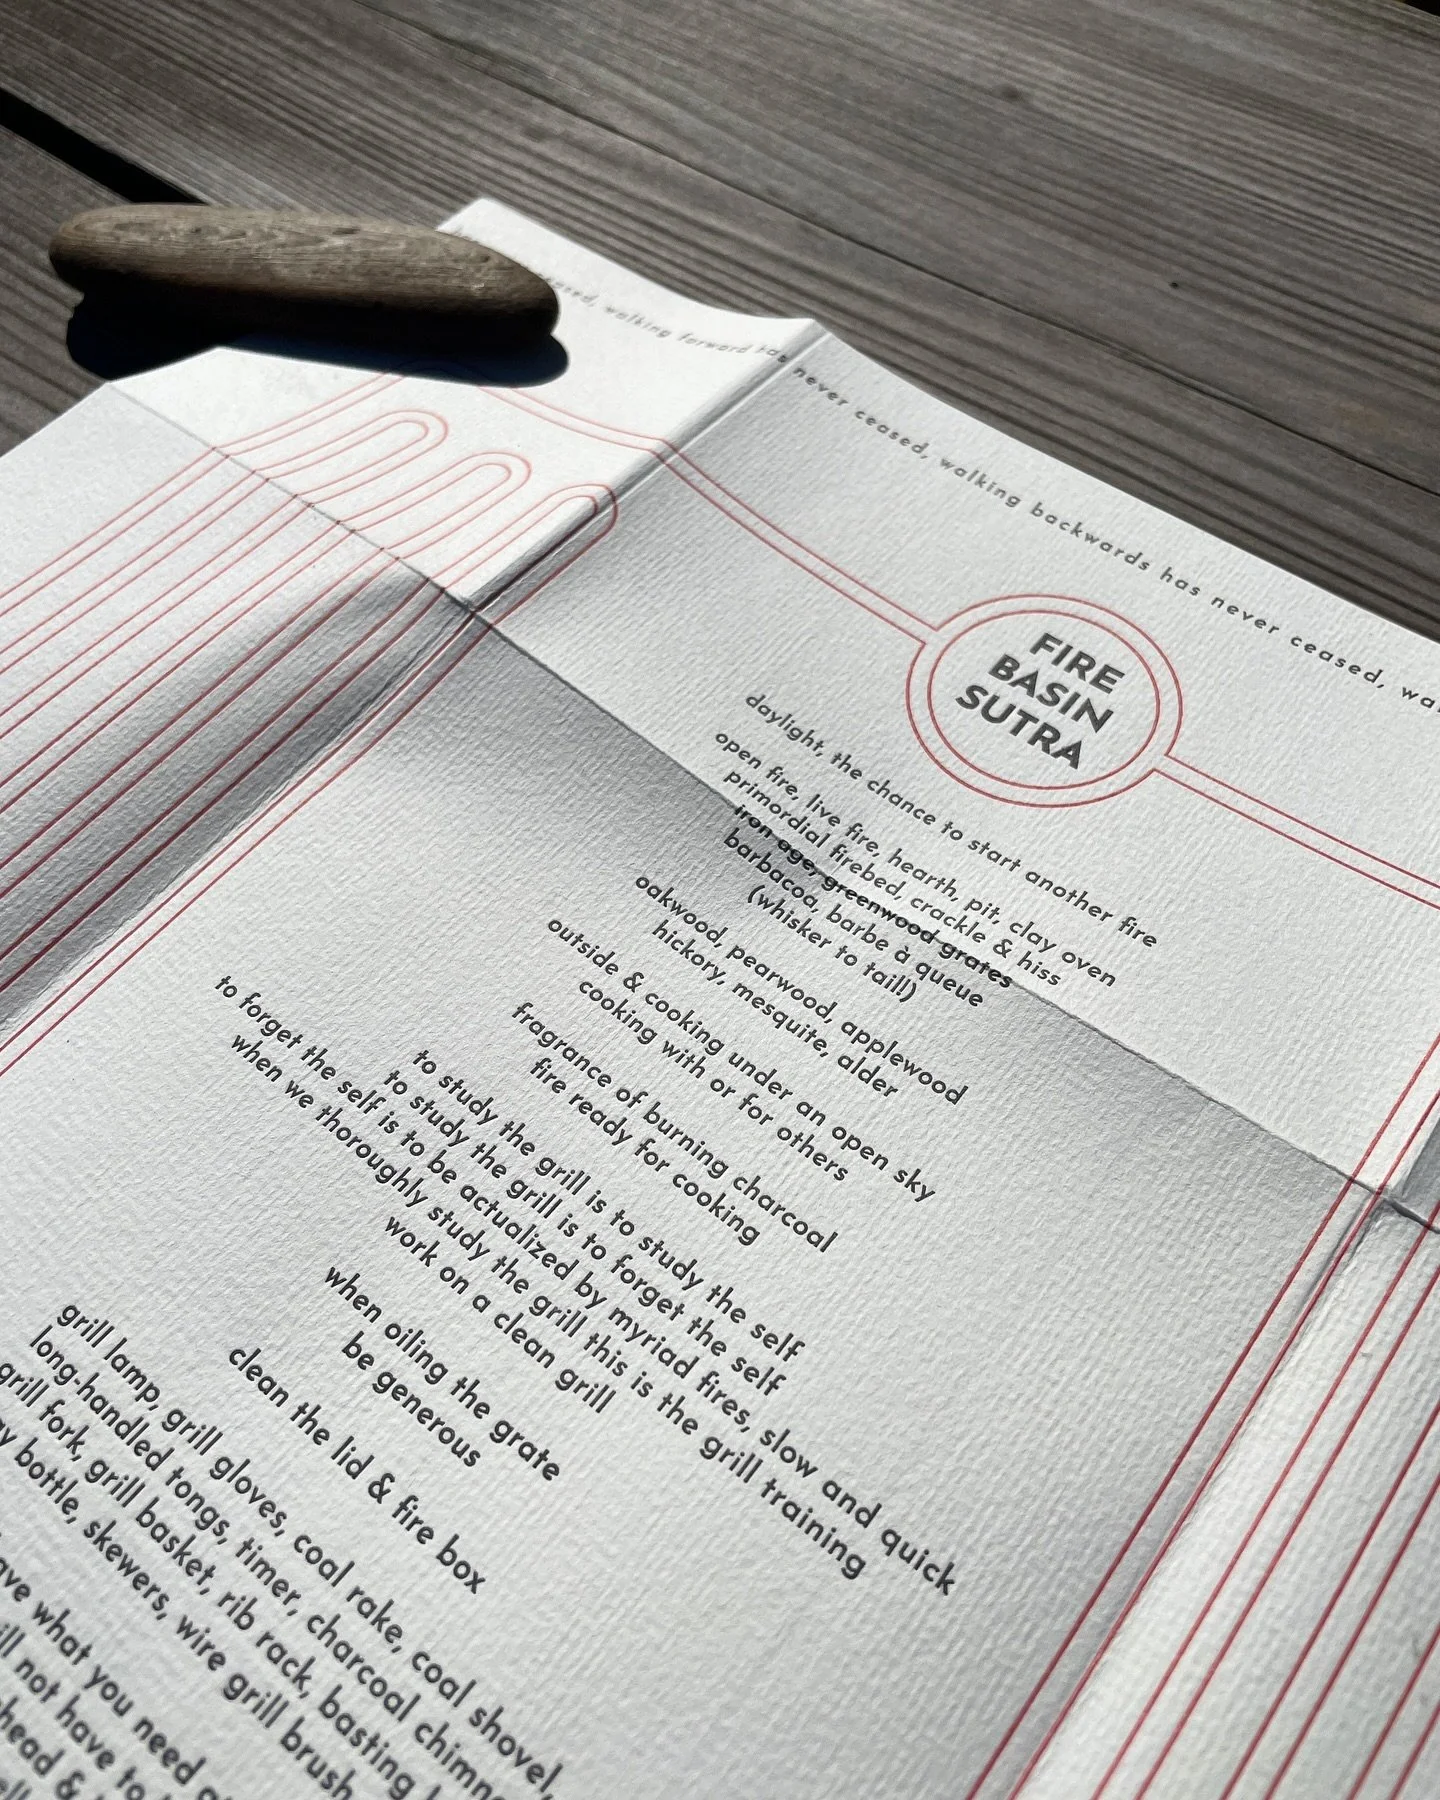 ceased, walking forward has never ceased, walking backwards has never ceased,
FIRE
BASIN
SUTRA
daylight, the chance to start another fire
open fire, live fire, hearth, pit, clay oven
primordial firebed, crackle & hiss
iron age, greenwood grates
barbacoa, barbe à queue
(whisker to tail!)
oakwood, pearwood, applewood
hickory, mesquite, alder
outside & cooking under an open sky
cooking with or for others
fragrance of burning charcoal
fire ready for cooking
to study the grill is to study the self
to study the grill is to forget the self
to forget the self is to be actualized by myriad fires, slow and quick
when we thoroughly study the grill this is the grill training
work on a clean grill
when oiling the grate
be generous
clean the lid & fire box
grill lamp, grill gloves, coal rake, coal shovel,
long-handled tongs, timer, charcoal
grill fork, grill basket, rib rack, basting
bottle, skewers, wire grill brush
what you need
not have to
head &